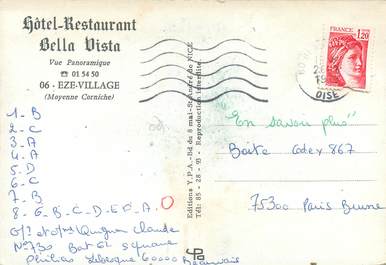 Hôtel-Restaurant
Bella Vista
Vue Panoramique
☎ 01 54 50
06 - EZE-VILLAGE
(Moyenne Corniche)
1 - B
2 - C
3 - A
4 - A
5 - D
6 - C
7 - B
8 - G - B - C - D - E - F - A.
Claude
N° 730 Bat Square
60000 Beauvais
Editions Y.P.A. - Bd du 8 mai - St-André de NICE
Tél: 85 - 28 - 93 - Reproduction Interdite.
FRANCE
1,20
OISE
"En savoir plus"
Boîte Cedex 867
75300 Paris Brune